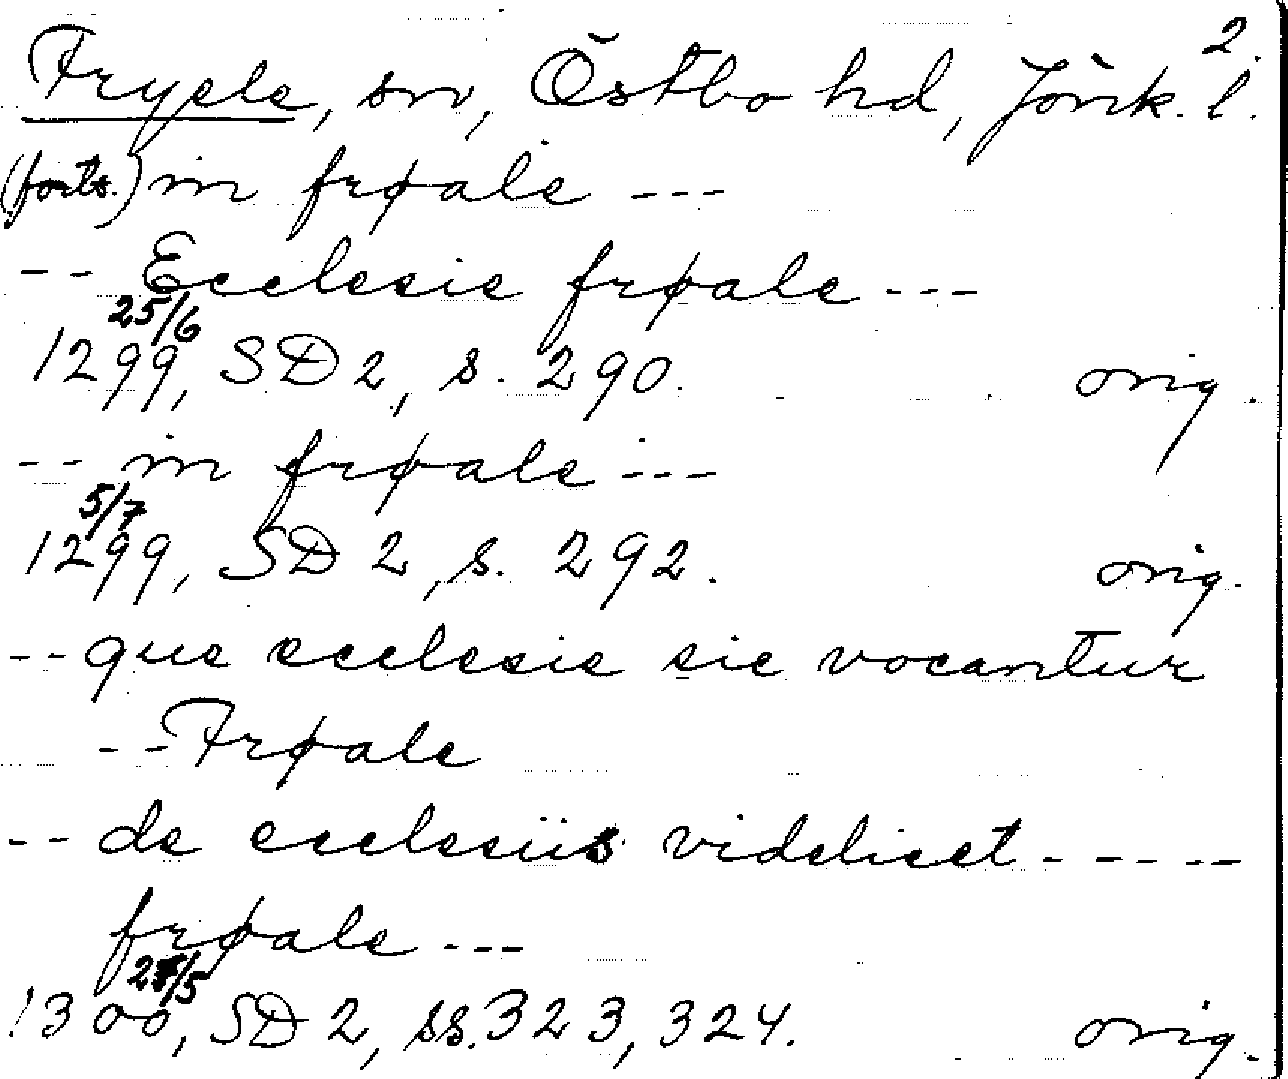 2.
Fryele, sn, Östbo hd, Jönk. l.
(forts.) in frøale ---
-- Ecclesie frøale ---
25/6
1299, SD 2, s. 290. orig.
-- in frøale ---
5/7
1299, SD 2, s. 292. orig.
-- que ecclesie sic vocantur
-- Frøale
-- de ecclesiis videlicet -----
frøale ---
27/5
1300, SD 2, ss. 323, 324. orig.